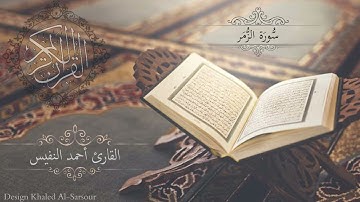 سُورَة الزُّمَر
القرآن الكريم
القارئ أحمد النفيس
Design Khaled Al-Sarsour